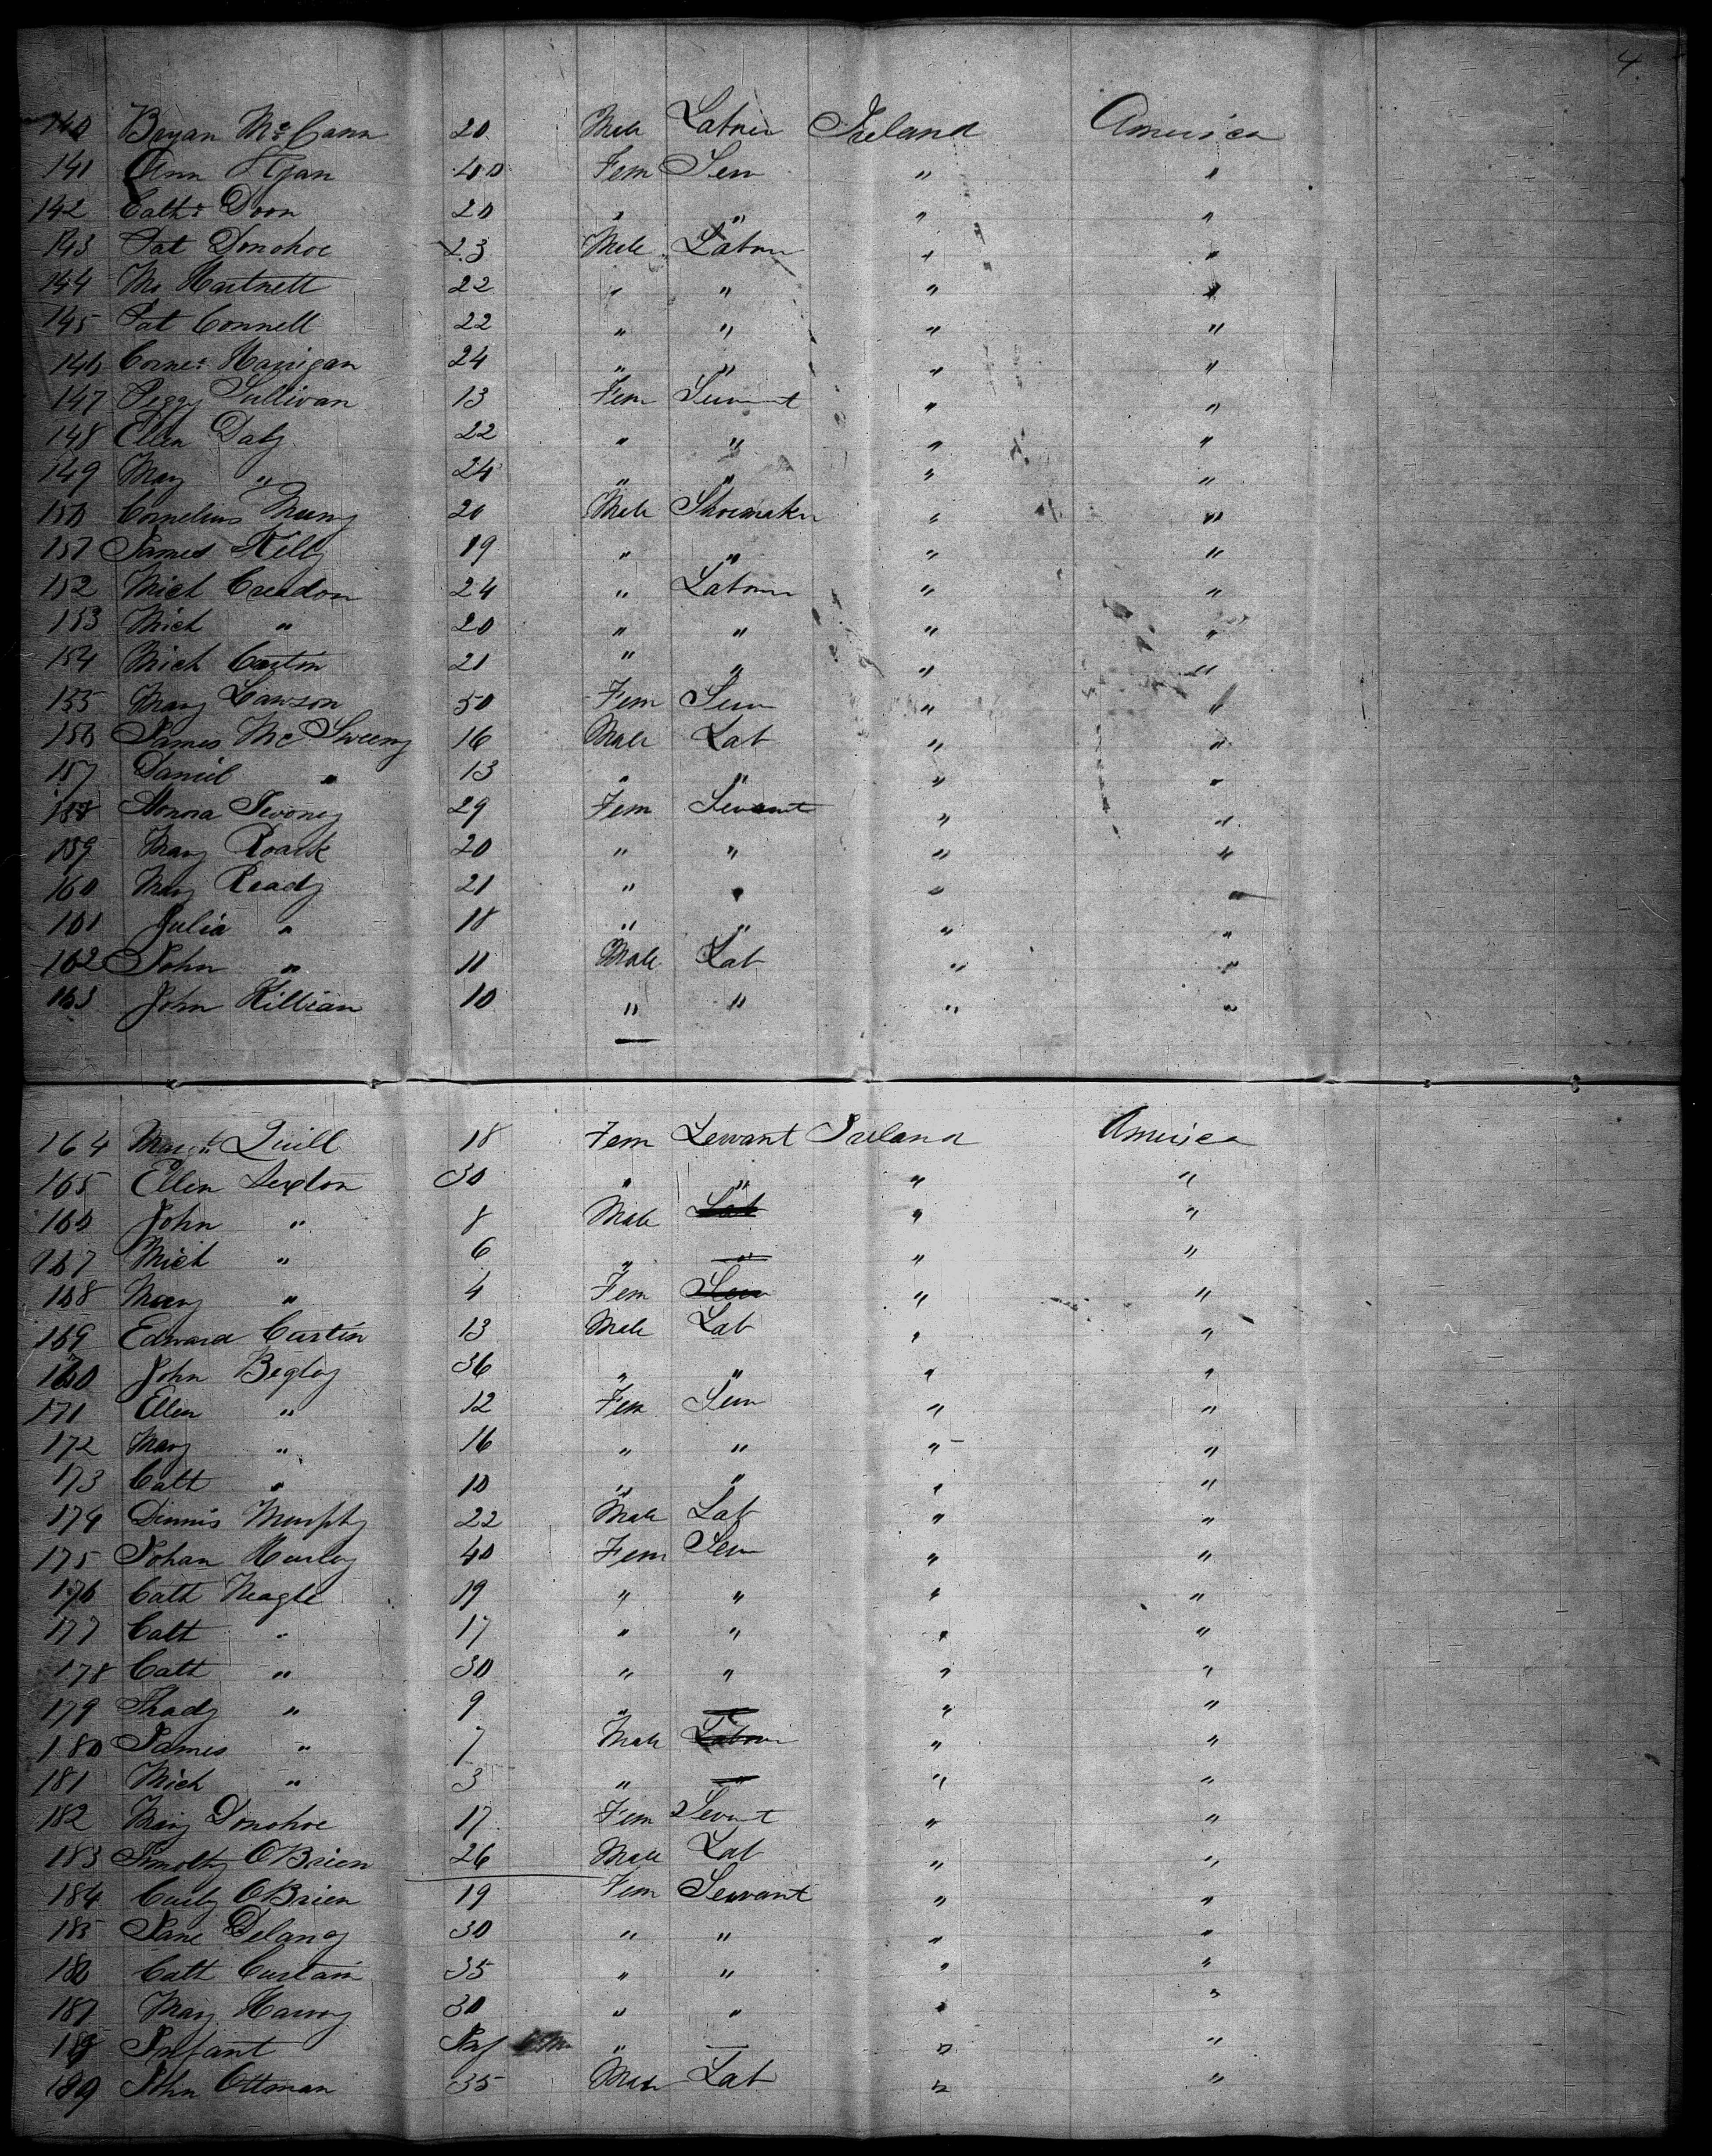 4.
140 Bryan McCann 20 Male Labrer Ireland America
141 Ann Ryan 40 Fem Serv " "
142 Cath. Doon 20 " " " "
143 Pat Donohoe 23 Male Labrer " "
144 Mo Hartnett 22 " " " "
145 Pat Connell 22 " " " "
146 Corne. Hanigan 24 " " " "
147 Peggy Sullivan 13 Fem Servant " "
148 Ellen Daly 22 " " " "
149 Mary " 24 " " " "
150 Cornelius 20 Male Shoemaker " "
151 James Kelly 19 " " " "
152 Mich Creadon 24 " Labrer " "
153 Mich " 20 " " " "
154 Mich Curtin 21 " " " "
155 Mary Lawson 50 Fem Serv " "
156 James McSweeny 16 Male Lab " "
157 Daniel " 13 " " " "
158 Honora Twoney 29 Fem Servant " "
159 Mary Roark 20 " " " "
160 Mary Ready 21 " " " "
161 Julia " 18 " " " "
162 John " 11 Male Lab " "
163 John Killian 10 " " " "
164 Margt Quill 18 Fem Servant Ireland America
165 Ellen Sexton 30 " " " "
166 John " 8 Male Lab " "
167 Mich " 6 " " " "
168 Mary " 4 Fem Serv " "
169 Edward Curtin 13 Male Lab " "
170 John Begley 36 " " " "
171 Ellen " 12 Fem Serv " "
172 Mary " 16 " " " "
173 Cath " 10 " " " "
174 Dinnis Murphy 22 Male Lab " "
175 Johan Hurley 40 Fem Serv " "
176 Cath Neagle 19 " " " "
177 Cath " 17 " " " "
178 Cath " 30 " " " "
179 Thady " 9 " " " "
180 James " 7 Male Labrer " "
181 Mich " 3 " " " "
182 Mary Donohoe 17 Fem Servant " "
183 Timothy OBrien 26 Male Lab " "
184 OBrien 19 Fem Servant " "
185 Jane Delaney 30 " " " "
186 Cath Curtain 35 " " " "
187 Mary 30 " " " "
188 Infant Inf " — " "
189 John Ottman 35 Male Lab " "